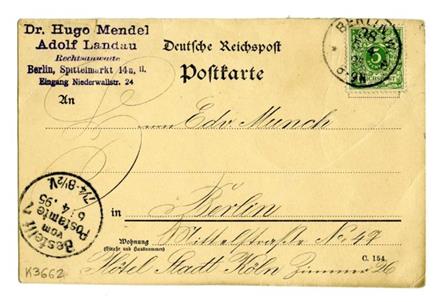 Dr. Hugo Mendel
Adolf Landau
Rechtsanwälte
Berlin, Spittelmarkt 14a, II.
Eingang Niederwallstr. 24
Deutsche Reichspost
Postkarte
BERLIN
5
An
Herrn Edv. Munch
in Berlin
Wohnung
(Straße und Hausnummer)
Mittelstraße No 49
Hôtel Stadt Köln Zimmer 26
C. 154.
Bestellt
vom
Postamte
6. 4. 95
7¼-8½V
K3662